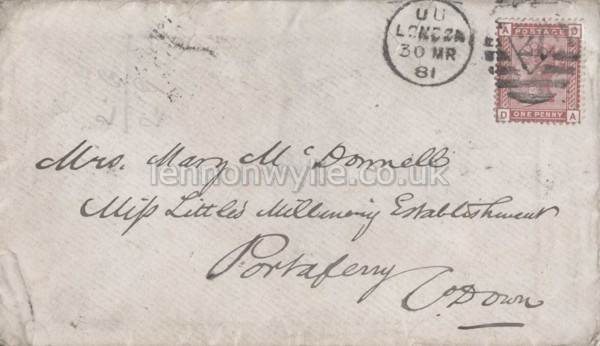 UU
LONDON
30 MR
81
A POSTAGE D
ONE PENNY
D A
Mrs. Mary McDonnell
lennonwylie.co.uk
Miss Little's Millinery Establishment
Portaferry
Co. Down